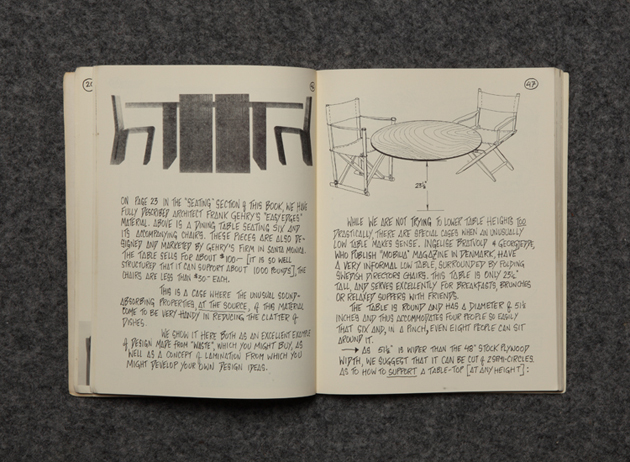 ON PAGE 23 IN THE "SEATING" SECTION OF THIS BOOK, WE HAVE
FULLY DESCRIBED ARCHITECT FRANK GEHRY'S "EASY EDGES"
MATERIAL. ABOVE IS A DINING TABLE SEATING SIX AND
ITS ACCOMPANYING CHAIRS. THESE PIECES ARE ALSO DE-
SIGNED AND MARKETED BY GEHRY'S FIRM IN SANTA MONICA.
THE TABLE SELLS FOR ABOUT $100— [IT IS SO WELL
STRUCTURED THAT IT CAN SUPPORT ABOUT 1000 POUNDS], THE
CHAIRS ARE LESS THAN $30— EACH.
THIS IS A CASE WHERE THE UNUSUAL SOUND-
ABSORBING PROPERTIES, AT THE SOURCE, OF THIS MATERIAL
COME TO BE VERY HANDY IN REDUCING THE CLATTER OF
DISHES.
WE SHOW IT HERE BOTH AS AN EXCELLENT EXAMPLE
OF DESIGN MADE FROM "WASTE", WHICH YOU MIGHT BUY, AS
WELL AS A CONCEPT OF LAMINATION FROM WHICH YOU
MIGHT DEVELOP YOUR OWN DESIGN IDEAS.
47
23½"
WHILE WE ARE NOT TRYING TO LOWER TABLE HEIGHTS TOO
DRASTICALLY, THERE ARE SPECIAL CASES WHEN AN UNUSUALLY
LOW TABLE MAKES SENSE. INGELISE BRATVOLD &
WHO PUBLISH "MOBILIA" MAGAZINE IN DENMARK, HAVE
A VERY INFORMAL LOW TABLE, SURROUNDED BY FOLDING
SWEDISH DIRECTORS CHAIRS. THIS TABLE IS ONLY 23½"
TALL AND SERVES EXCELLENTLY FOR BREAKFASTS, BRUNCHES
OR RELAXED SUPPERS WITH FRIENDS.
THE TABLE IS ROUND AND HAS A DIAMETER OF 51½
INCHES AND THUS ACCOMMODATES FOUR PEOPLE SO EASILY
THAT SIX AND, IN A PINCH, EVEN EIGHT PEOPLE CAN SIT
AROUND IT.
→ AS 51½" IS WIDER THAN THE 48" STOCK PLYWOOD
WIDTH, WE SUGGEST THAT IT CAN BE CUT OF 2 SEMI-CIRCLES.
AS TO HOW TO SUPPORT A TABLE-TOP [AT ANY HEIGHT]: